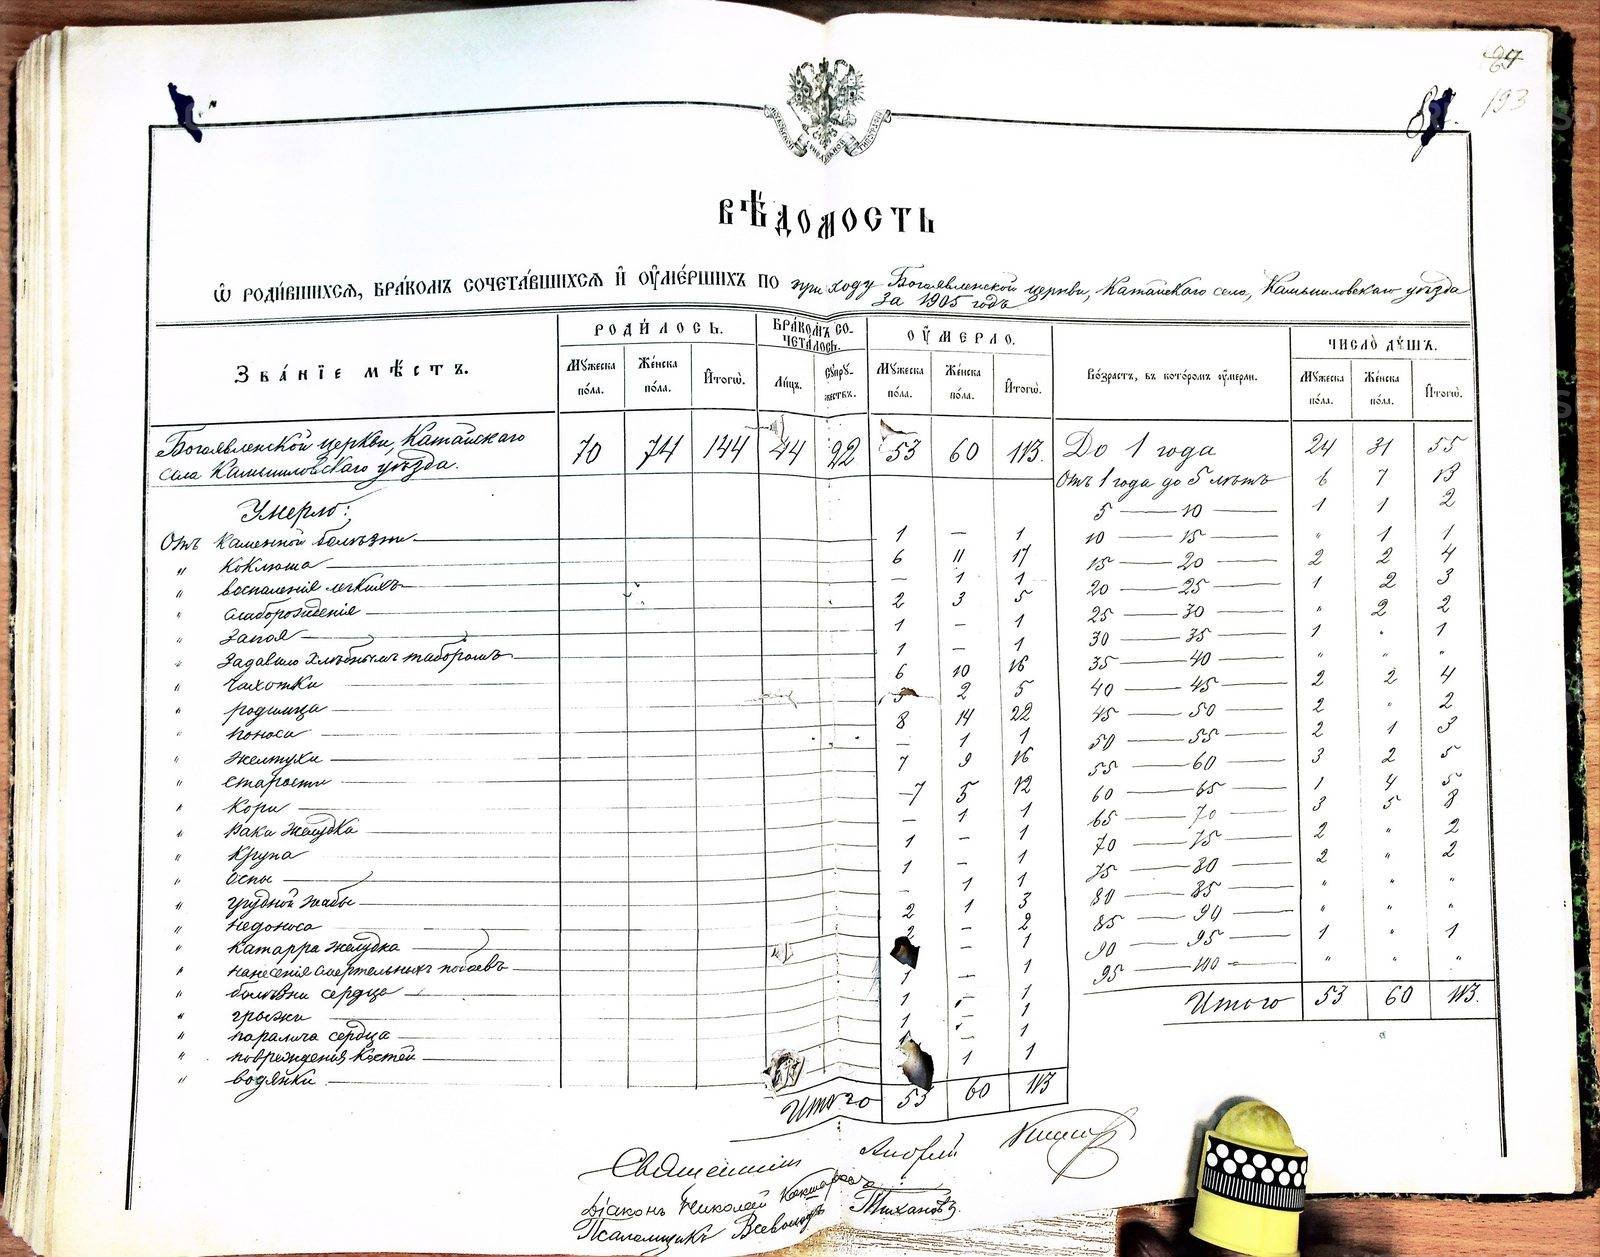 193
МОСКОВСКОЙ СѴНОДАЛЬНОЙ ТИПОГРАФІИ
ВѢДОМОСТЬ
Ѡ РОДИВШИХСЯ, БРАКОМЪ СОЧЕТАВШИХСЯ И ОУМЕРШИХЪ ПО приходу Богоявленской церкви, Катайскаго села, Камышловскаго уѣзда
за 1905 годъ
ЗВАНІЕ МѢСТЪ. РОДИЛОСЬ. БРАКОМЪ СОЧЕТАЛОСЬ. ОУМЕРЛО. Возрастъ, въ которомъ оумерли. ЧИСЛО ДУШЪ.
Мужеска пола. Женска пола. Итогѡ. Лицъ. Супружествъ. Мужеска пола. Женска пола. Итогѡ. Мужеска пола. Женска пола. Итогѡ.
Богоявленской церкви, Катайскаго
села Камышловскаго уѣзда. 70 74 144 44 22 53 60 113. До 1 года 24 31 55
Отъ 1 года до 5 лѣтъ 6 7 13
Умерло: 5 — 10 — 1 1 2
Отъ каменной болѣзни 1 — 1 10 — 15 — " 1 1
" Коклюша 6 11 17 15 — 20 — 2 2 4
" воспаленія легкихъ — 1 1 20 — 25 — 1 2 3
" слаборожденія 2 3 5 25 — 30 — " 2 2
" Запоя 1 — 1 30 — 35 — 1 " 1
" Задавило хлѣбнымъ 1 — 1 35 — 40 — " " "
" чахотки 6 10 16 40 — 45 — 2 2 4
" родимца 3 2 5 45 — 50 — 2 " 2
" поноса 8 14 22 50 — 55 — 2 1 3
" желтухи — 1 1 55 — 60 — 3 2 5
" старости 7 9 16 60 — 65 — 1 4 5
" Кори 7 5 12 65 — 70 — 3 5 8
" Рака желудка — 1 1 70 — 75 — 2 " 2
" Крупа 1 — 1 75 — 80 — 2 " 2
" Оспы 1 — 1 80 — 85 — " " "
" грудной жабы — 1 1 85 — 90 — " " "
" недоноса 2 1 3 90 — 95 — 1 " 1
" Катарра желудка 2 — 2 95 — 100 — " " "
" нанесенія смертельныхъ побоевъ — 1 Итого 53 60 113.
" болѣзни сердца 1 — 1
" грыжи 1 " 1
" паралича сердца 1 " 1
" повреждения костей 1
" водянки 1 1
Итого 53 60 113
Священникъ Андрей
Діаконъ Николай
Псаломщикъ Всеволодъ Тихановъ.